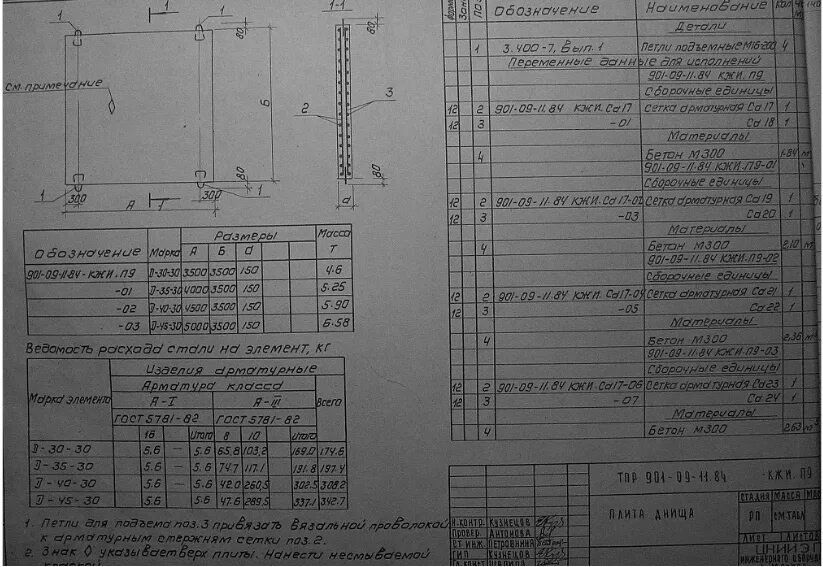 1 1 1 1-1
80 80
См. примечание
Б
2 3
1 1
300 300
А 1
80 80
d
Обозначение Марка Размеры Масса
А Б d Т
901-09-11.84-КЖИ.П9 D-30-30 3500 3500 150 4.6
-01 D-35-30 4000 3500 150 5.25
-02 D-40-30 4500 3500 150 5.90
-03 D-45-30 5000 3500 150 6.58
Ведомость расхода стали на элемент, кг
Марка элемента Изделия арматурные
Арматура класса Всего
А-I А-III
ГОСТ 5781-82 ГОСТ 5781-82
16 — Итого 8 10 Итого
D-30-30 5.6 — 5.6 65,8 103,2 169.0 174.6
D-35-30 5.6 — 5.6 74.7 117.1 191.8 197.4
D-40-30 5.6 — 5.6 42.0 260,5 302.5 308.2
D-45-30 5.6 5.6 47.6 289,5 337.1 342.7
1. Петли для подъема поз.3 привязать вязальной проволокой
к арматурным стержням сетки поз.2.
2. Знак ◊ указывает верх плиты. Нанести несмываемой
краской.
Обозначение Наименование
Детали
1 3.400-7, Вып. 1 Петли подъемные М16-200 4
Переменные данные для исполнений
901-09-11.84 КЖИ.П9
Сборочные единицы
12 2 901-09-11.84 КЖИ.Са17 Сетка арматурная Са17 1
12 3 -01 Са18 1
Материалы
4 Бетон М300 1.84 м
901-09-11.84 КЖИ.П9-01
Сборочные единицы
12 2 901-09-11.84 КЖИ.Са17-02 Сетка арматурная Са19 1
12 3 -03 Са20 1
Материалы
4 Бетон М300 2,10 м
901-09-11.84 КЖИ.П9-02
Сборочные единицы
12 2 901-09-11.84 КЖИ.Са17-04 Сетка арматурная Са21 1
12 3 -05 Са22 1
Материалы
4 Бетон М300 2,36 м
901-09-11.84 КЖИ.П9-03
Сборочные единицы
12 2 901-09-11.84 КЖИ.Са17-06 Сетка арматурная Са23 1
12 3 -07 Са24 1
Материалы
4 Бетон М300 2,63 м³
ТПР 901-09-11.84 -КЖИ. П9
ПЛИТА ДНИЩА
СТАДИЯ МАССА
РП СМ.ТАБЛ
ЛИСТ ЛИСТОВ
Н.КОНТР. КУЗНЕЦОВ
ПРОВЕР. АНТОНОВА
СТ.ИНЖ. ПЕТРОВНИНА
ГИП КУЗНЕЦОВ
ЦНИИЭП
ИНЖЕНЕРНОГО ОБОРУ